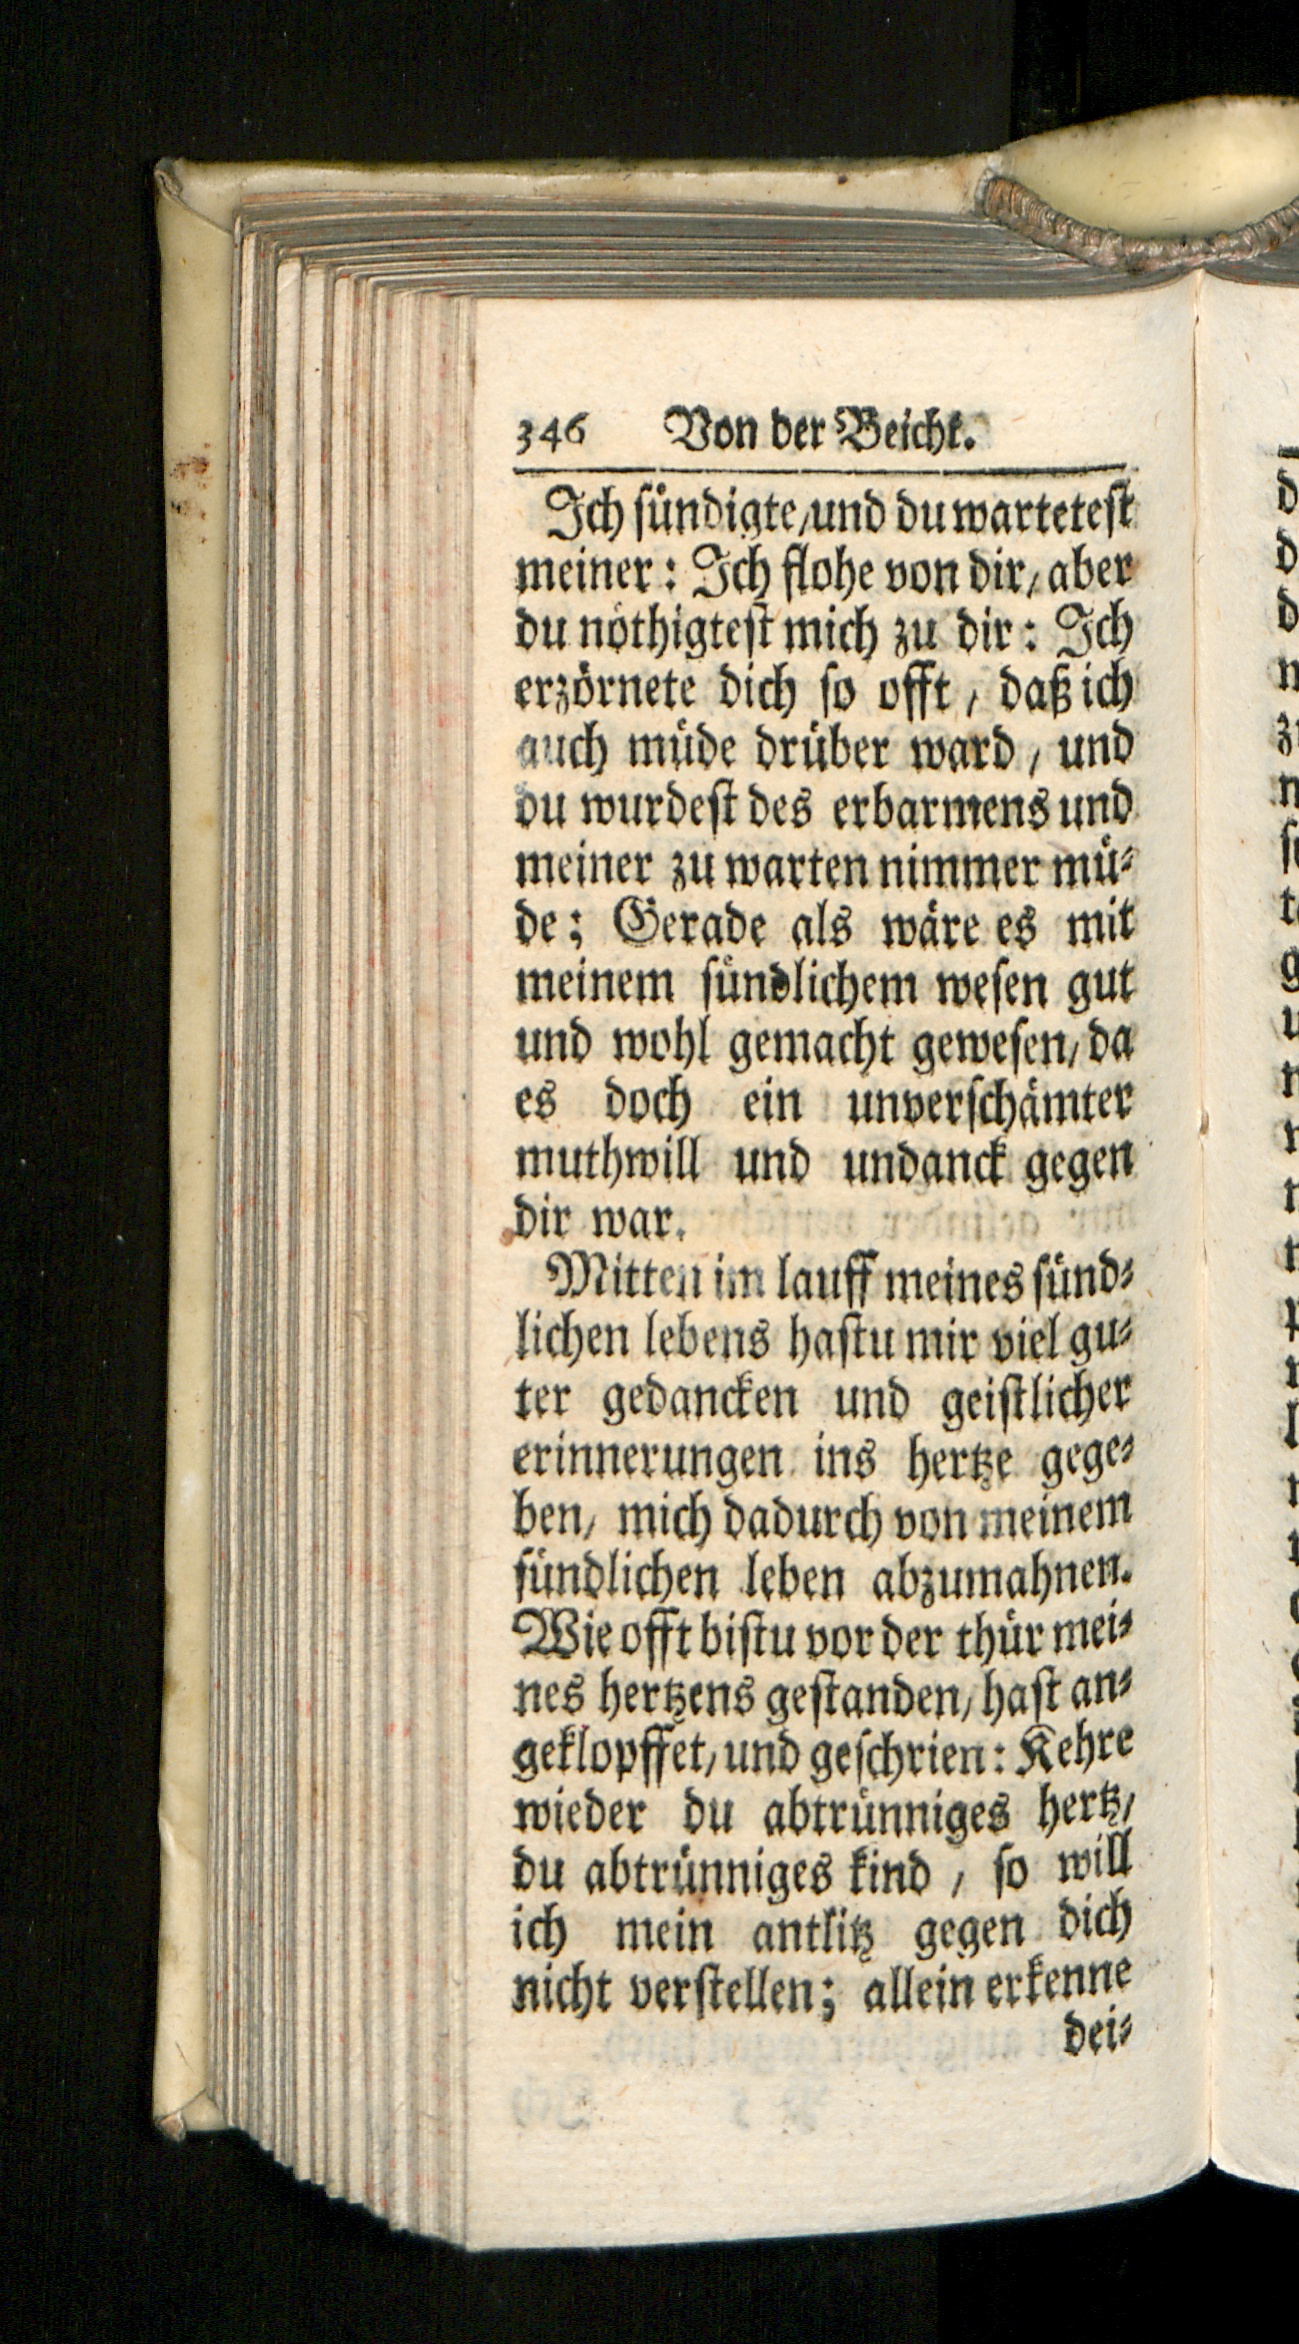 346 Von der Beicht.
Ich ſündigte/und du warteteſt
meiner: Ich flohe von dir/ aber
du nöthigteſt mich zu dir: Ich
erzörnete dich ſo offt / daß ich
auch müde drüber ward / und
du wurdeſt des erbarmens und
meiner zu warten nimmer mü⸗
de; Gerade als wäre es mit
meinem ſündlichem weſen gut
und wohl gemacht geweſen/ da
es doch ein unverſchämter
muthwill und undanck gegen
dir war.
Mitten im lauff meines ſünd⸗
lichen lebens haſtu mir viel gu⸗
ter gedancken und geiſtlicher
erinnerungen ins hertze gege⸗
ben/ mich dadurch von meinem
ſündlichen leben abzumahnen.
Wie offt biſtu vor der thür mei⸗
nes hertzens geſtanden/ haſt an⸗
geklopffet/ und geſchrien: Kehre
wieder du abtrünniges hertz/
du abtrünniges kind / ſo will
ich mein antlitz gegen dich
nicht verſtellen; allein erkenne
dei⸗